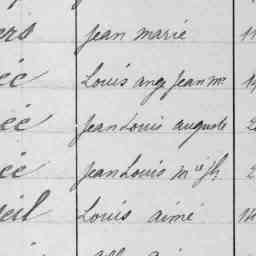 ers Jean Marie 1
ée Louis ange Jean mie 1
ée Jean Louis auguste 2
ée Jean Louis M ie Jh 2
eil Louis aimé 14